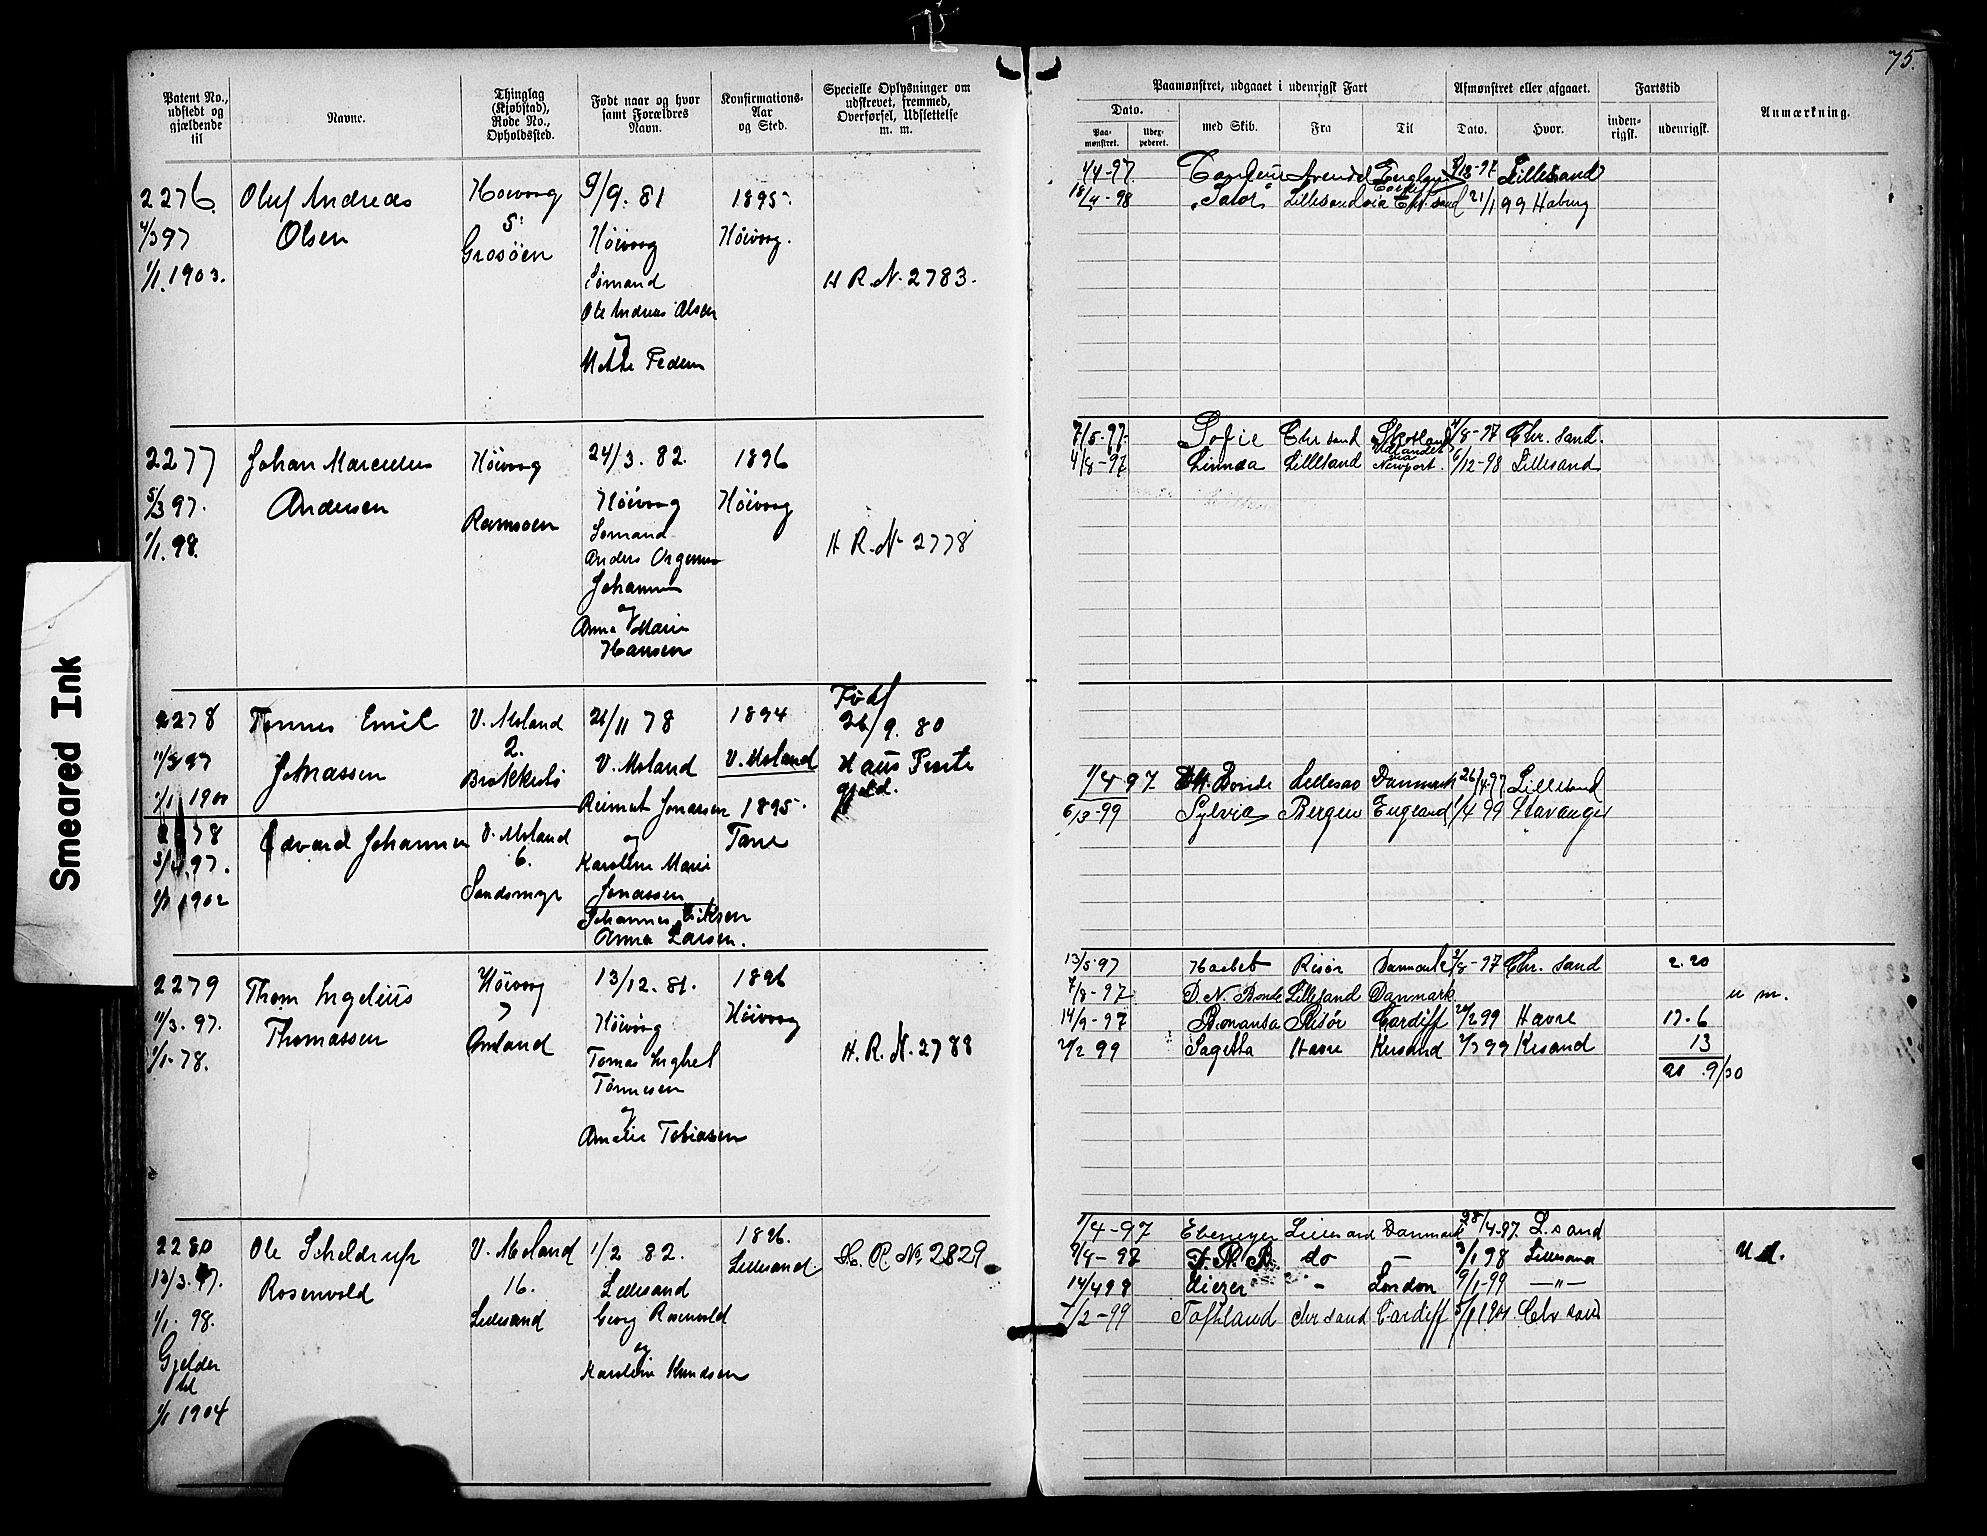 75.
Patent No., udstedt og gjældende til
Navne.
Thinglag (Kjøbstad), Rode No., Opholdssted.
Født naar og hvor samt Forældres Navn.
Konfirmations-Aar og Sted.
Specielle Oplysninger om udskrevet, fremmed, Overførsel, Udslettelse m. m.
Paamønstret, udgaaet i udenrigsk Fart
Afmønstret eller afgaaet.
Fartstid
Anmærkning.
Dato.
Paa-mønstret.
Udex-pederet.
med Skib.
Fra
Til
Dato.
Hvor.
inden-rigsk.
udenrigsk.
Smeared Ink
2276
4/3 97
1/1. 1903.
Oluf Andreas
Olsen
Høivaag
5
Grosøen
9/9. 81
Høivaag
Sømand
Ole Andreas Olsen
og
Mette Pedersen
1895.
Høivaag.
H R. N. 2783.
1/4-97 Arendal England 97 Lillesand
18/4-98 "Salør" Lillesand via Cardiff Chr. sand 21/1 99 Haburg
2277
5/3 97.
1/1. 98.
Johan Marcelius
Andersen
Høivaag
Ramsøen
24/3. 82.
Høivaag
Sømand
Anders
Johannes
og
Anna Marie
Hansen
1896
Høivaag
H R. N. 2778
7/5-97. Sofie Chr sand Skotland /8-97 Chr. sand.
4/8-97 Linnea Lillesand via Newport. 6/12-98 Lillesand
2278
11/3 97
1/1 1900
Tønnes Emil
Jonassen
V. Moland
2.
Brækkestø
21/11 78
V. Moland
Reimert Jonassen
og
Karoline Marie
Jonassen
1894
V. Moland
Født
26/9. 80
Haus Præste
gjeld.
2278
97.
1/1 1902
Edvard Johannes
V. Moland
6.
Sandsmyr
Johannes Eriksen
Anna Larsen.
1895.
Tane
1/4 97 Bonde Lillesand Danmark 26/4 97 Lillesand
6/3-99 Sylvia Bergen England 1/4 99 Stavanger
2279
11/3. 97.
1/1-78.
Thom Ingelius
Thomassen
Høivaag
7
Omland
13/12. 81.
Høivåg
Tomas Inghel
Tønnesen
og
Amalie Tobiasen
1896
Høivaag
H. R. N. 2788
13/5 97 Haabet Risør Danmark /8-97 Chr. sand 2. 20
7/8-97 D. N. Bonde Lillesand Danmark u m.
14/9-97 Bonansa Risør Cardiff 20/2 99 Havre 17-6
21/2 99 Sagitta Havre Krsand 2/3 99 Krsand 13
20 9/30
2280
13/3. 97.
1/1. 98.
Gjelder
til
1/1 1904
Ole Scheldrup
Rosenvold
V. Moland
16.
Lillesand
1/2 82.
Lillesand
Georg Rosenvold
og
Karoline Knudsen
1896.
Lillesand
H. R. No. 2829
1/4-97 Ebeneser Lillesand Danmark 28/4-97. L. sand
9/4-97 D. N. B. do — 3/1 98 Lillesand U d.
14/4 98 Eliezer - London 9/1-99 —"—
7/2-99 Toftland Chr sand Cardiff 5/1 1901 Chr sand